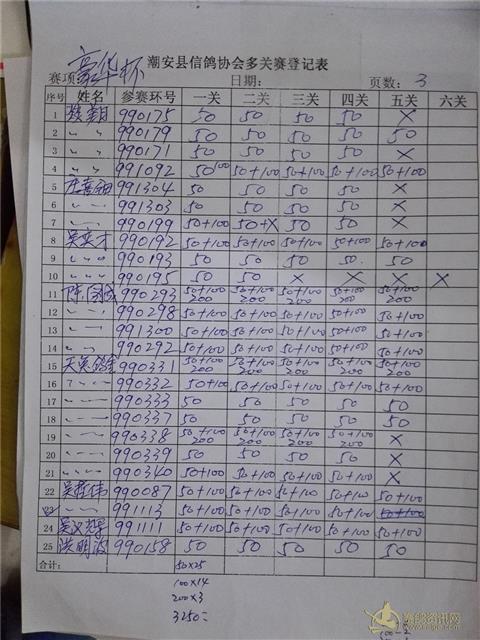 潮安县信鸽协会多关赛登记表
赛项: 豪华杯 日期: 页数: 3
序号 姓名 参赛环号 一关 二关 三关 四关 五关 六关
1 990175 50 50 50 50 ×
2 〃 〃 990179 50 50 50 50 50
3 〃 〃 990171 50 50 50 50 ×
4 〃 〃 991092 50+100 50+100 50+100 50+100 50+100
5 991304 50 50 50 50 ×
6 〃 〃 991303 50 50 50 50 ×
7 〃 〃 990199 50+100 50+× 50 50 ×
8 吴奕才 990192 50+100 50+100 50+100 50+100 50+100
9 〃 〃 990193 50 50 50 50 50
10 〃 〃 990195 50 50 × × × ×
11 990293 50+100 200 50+100 200 50+100 200 50+100 200 50+100 200
12 〃 〃 990298 50+100 50+100 50+100 50+100 50+100
13 〃 〃 991300 50+100 50+100 50+100 50+100 50+100
14 〃 〃 990292 50+100 50+100 50+100 50+100 50+100
15 天英鸽舍 990331 50+100 200 50+100 200 50+100 200 50+100 200 50+100 200
16 〃 〃 990332 50+100 50+100 50+100 50+100 50+100
17 〃 〃 990333 50 50 50 50 50
18 〃 〃 990337 50 50 50 50 50
19 〃 〃 990338 50+100 200 50+100 200 50+100 200 50+100 200 ×
20 〃 〃 990339 50 50 50 50 ×
21 〃 〃 990340 50+100 50+100 50+100 50+100 ×
22 吴哲伟 990087 50+100 50+100 50+100 50+100 50+100
23 〃 〃 991113 50+100 50+100 50+100 50+100 50+100
24 991111 50+100 50+100 50+100 50+100 50+100
25 洪明波 990158 50 50 50 50 50
合计:
50×25
100×14
200×3
3250=
赛鸽资讯网